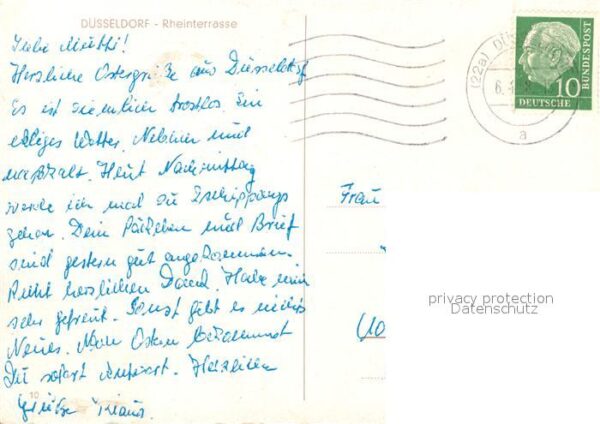 DÜSSELDORF - Rheinterrasse
Liebe Mutti!
Herzliche Ostergrüße aus Düsseldorf
Es ist ziemlich trostlos. Ein
ekliges Wetter. Nebelner und
naßkalt. Heut Nachmittag
werde ich mal zu Zschippangs
gehen. Dein Päckchen und Brief
sind gestern gut angekommen.
Recht herzlichen Dank. Habe mich
sehr gefreut. Sonst gibt es nichts
Neues. Nach Ostern bekommst
Du sofort Antwort. Herzliche
Grüße Klaus.
10
(22a) DÜ
6.
a
10
DEUTSCHE
BUNDESPOST
Frau
privacy protection
Datenschutz